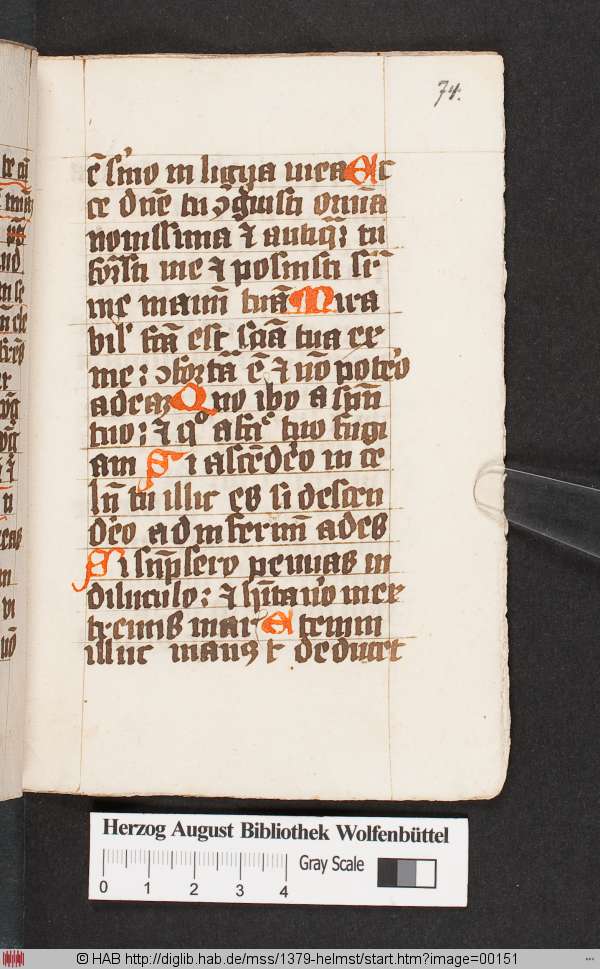 74.
ē s̄mo in līgua mea Ec
ce dn̄e tu ꝯg̅uisti om̄ia
nouissima ⁊ antiq̄ꝫ tu
formasti me ⁊ posuisti sr̄
me manū tuā Mira
bil' fc̄a est scīa tua ex
me : ꝯfortā ē ⁊ nō potero
ad eaꝫ Quo ibo a spū
tuo : ⁊ qͦ a facͥe tuo fugi
am Si ascēdero in ce
lū tu illic es si descen
dero ad infernū ades
Si sūpsero pennas m
diluculo : ⁊ hītauo in ex
tremis mar Etenim
illuc manꝫ t deducet
Herzog August Bibliothek Wolfenbüttel
0 1 2 3 4
Gray Scale
© HAB http://diglib.hab.de/mss/1379-helmst/start.htm?image=00151